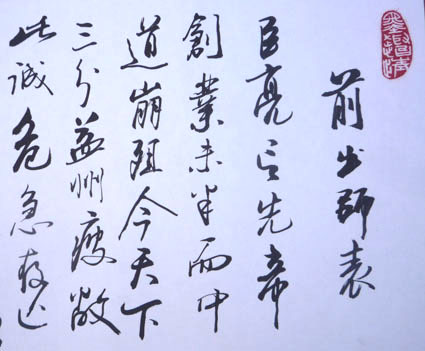 前出師表
臣亮言先帝
創業未半而中
道崩殂今天下
三分益州疲敝
此誠危急存亡